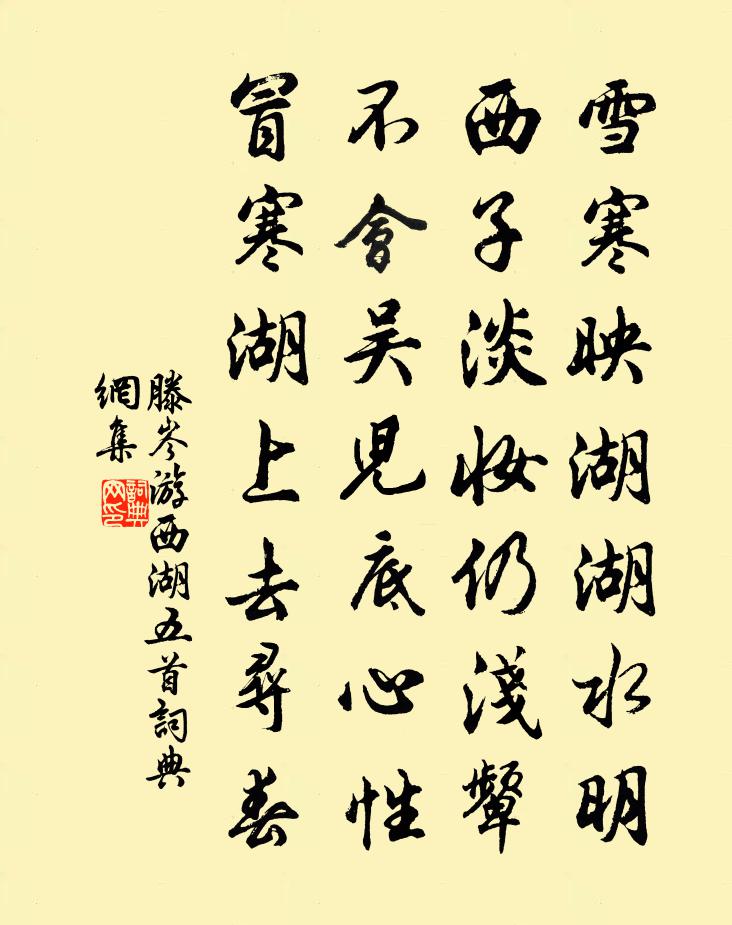 雪寒映湖湖水明
西子淡妝仍淺顰
不會吴兒底心性
冒寒湖上去尋春
滕岑游西湖五首詞典
網集
詞典
网印